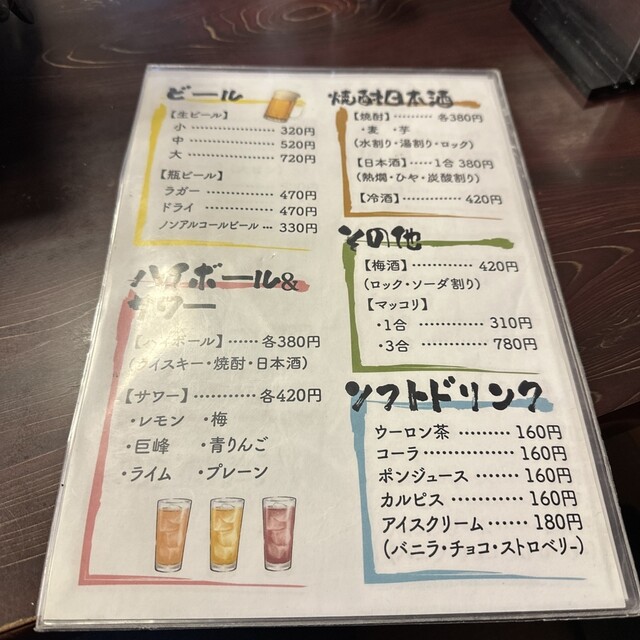 ビール
【生ビール】
小 ………………… 320円
中 ………………… 520円
大 ………………… 720円
【瓶ビール】
ラガー ……………… 470円
ドライ ……………… 470円
ノンアルコールビール … 330円
ハイボール&
サワー
【ハイボール】 …… 各380円
(ウイスキー・焼酎・日本酒)
【サワー】 ………… 各420円
・レモン ・梅
・巨峰 ・青りんご
・ライム ・プレーン
焼酎日本酒
【焼酎】 ……… 各380円
・麦 ・芋
(水割り・湯割り・ロック)
【日本酒】 …… 1合 380円
(熱燗・ひや・炭酸割り)
【冷酒】 ……………… 420円
その他
【梅酒】 ………… 420円
(ロック・ソーダ割り)
【マッコリ】
・1合 ………… 310円
・3合 ………… 780円
ソフトドリンク
ウーロン茶 ……… 160円
コーラ …………… 160円
ポンジュース …… 160円
カルピス ………… 160円
アイスクリーム …… 180円
(バニラ・チョコ・ストロベリー)